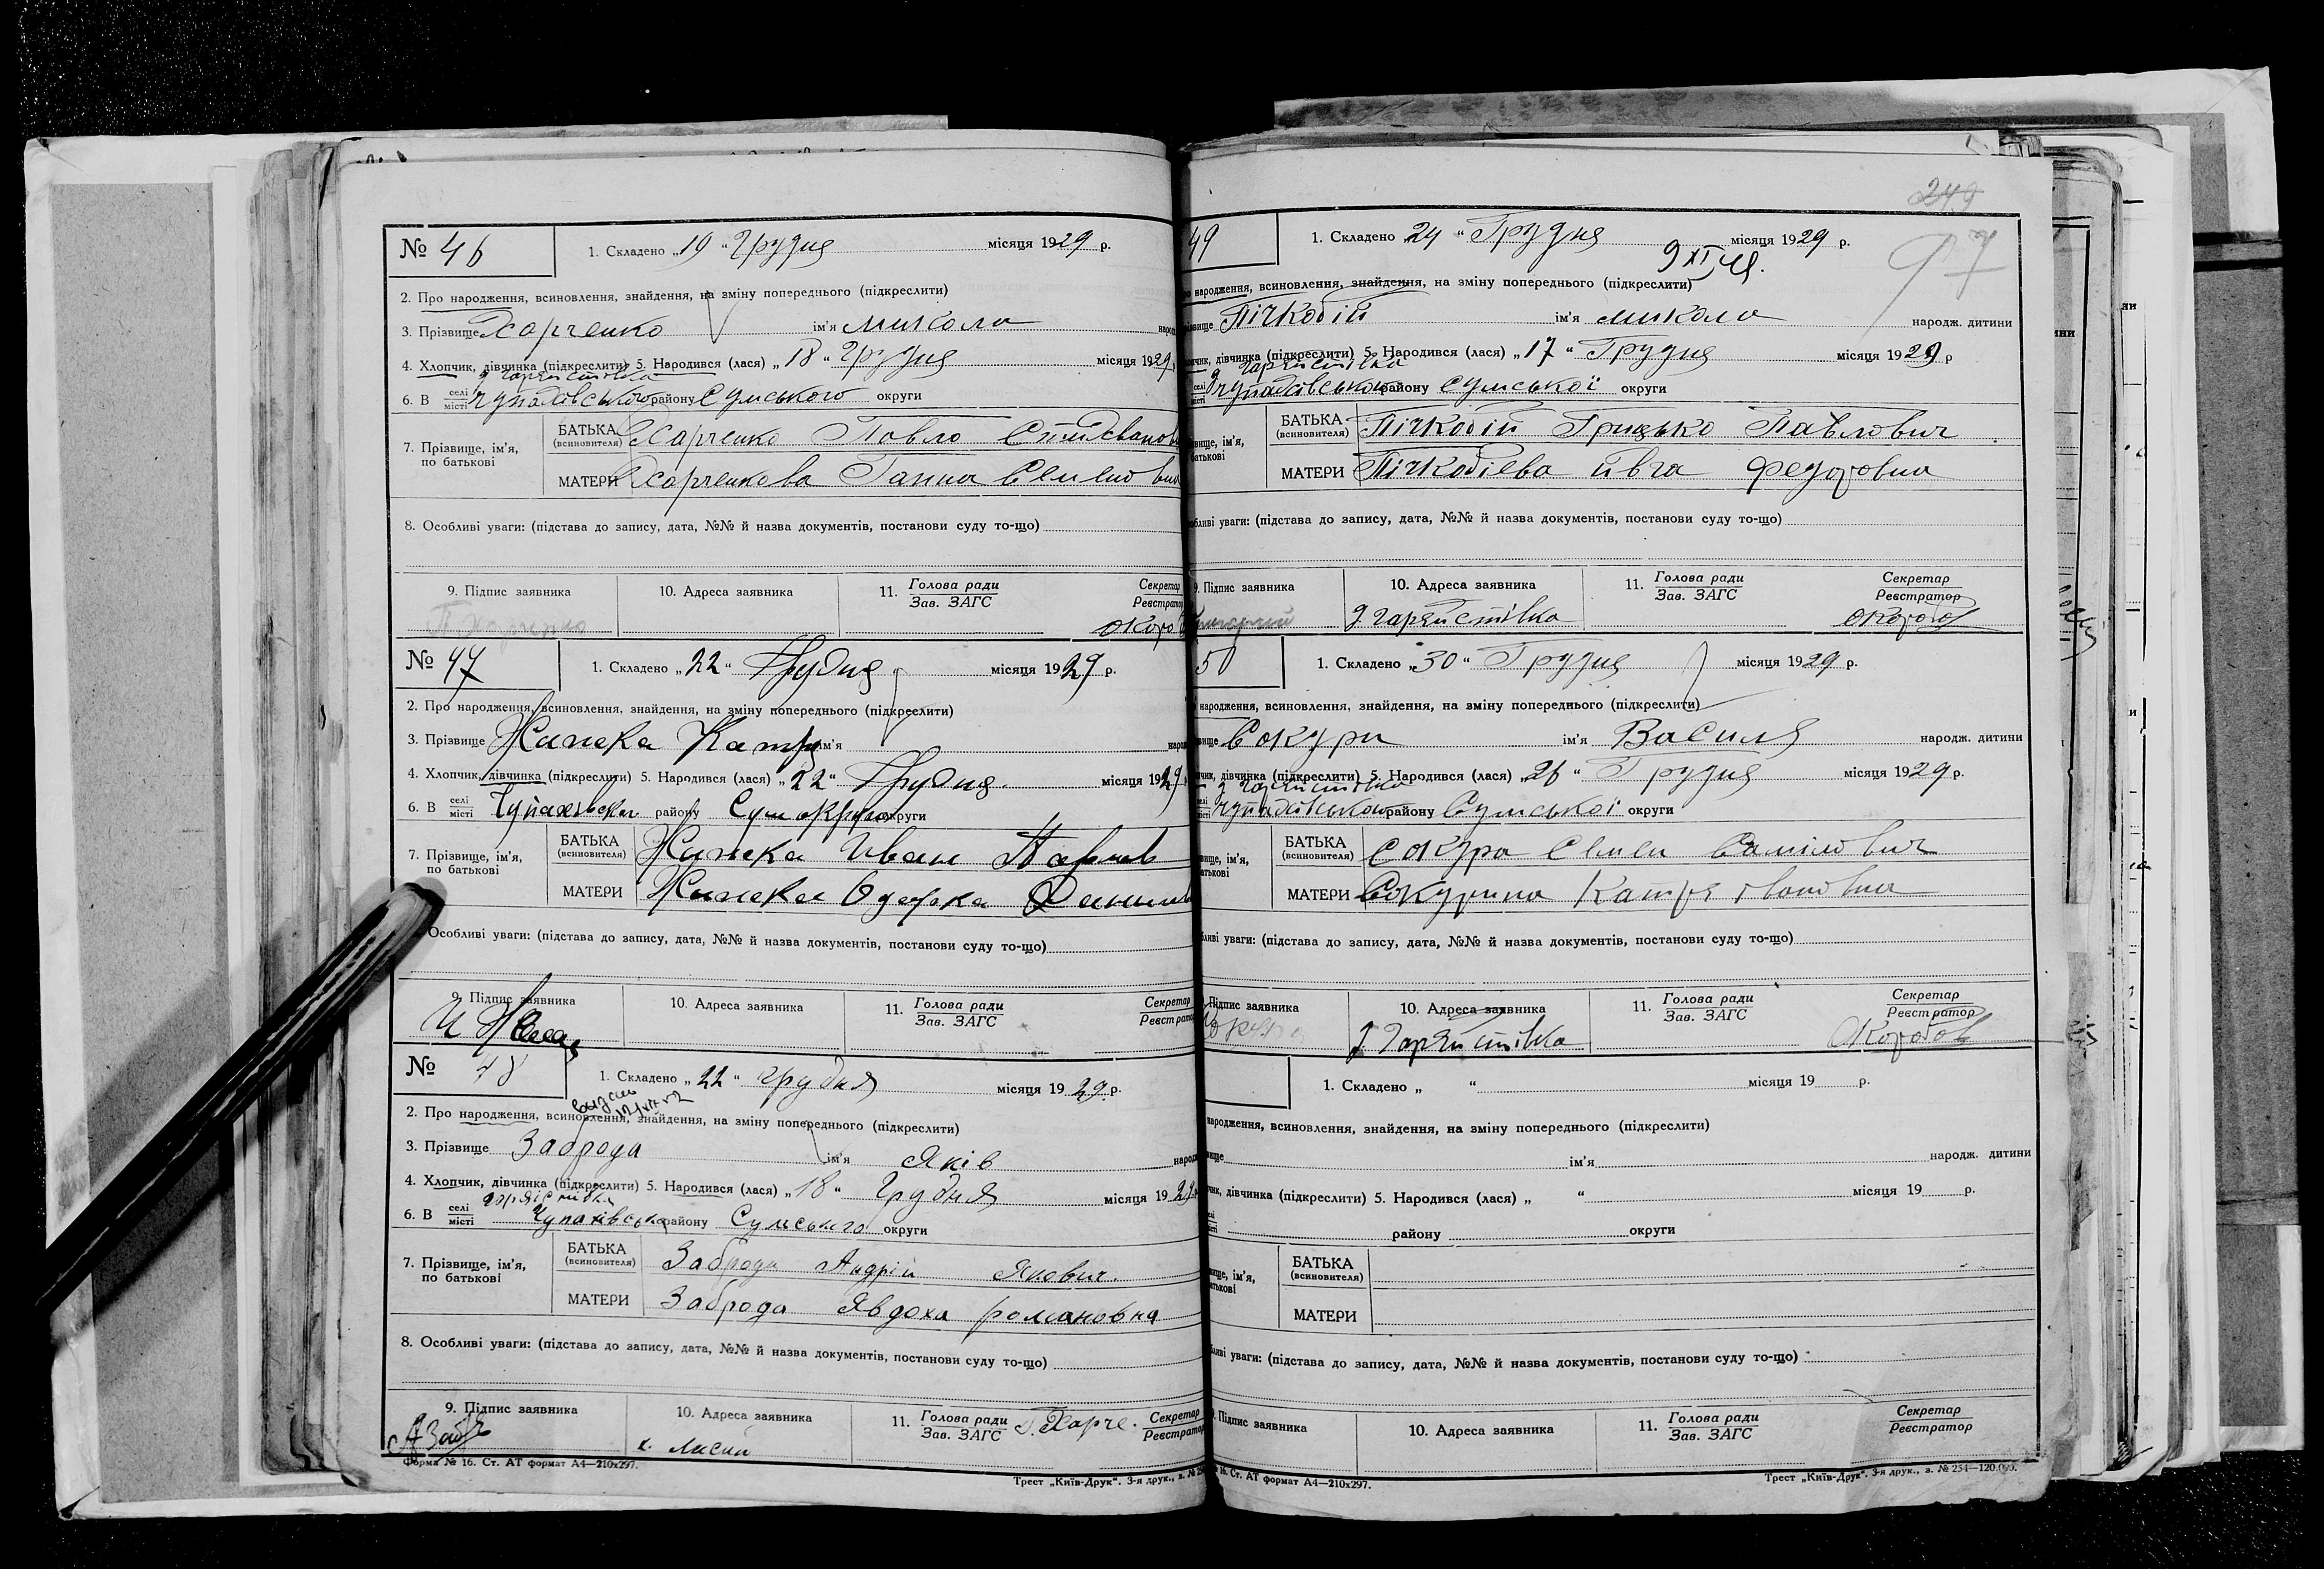 № 46
1. Складено „19“ Грудня місяця 1929 р.
2. Про народження, всиновлення, знайдення, на зміну попереднього (підкреслити)
3. Прізвище Харченко ім'я Микола народ
4. Хлопчик, дівчинка (підкреслити) 5. Народився (лася) „18“ Грудня місяця 1929
6. В селі місті Чупахівського району Сумського округи
7. Прізвище, ім'я, по батькові
БАТЬКА (всиновителя) Харченко Павло
МАТЕРИ Харченкова Ганна Семеновна
8. Особливі уваги: (підстава до запису, дата, №№ й назва документів, постанови суду то-що)
9. Підпис заявника 10. Адреса заявника 11. Голова ради Зав. ЗАГС Секретар Реєстратор
П Харченко
№ 47
1. Складено „22“ Грудня місяця 1929 р.
2. Про народження, всиновлення, знайдення, на зміну попереднього (підкреслити)
3. Прізвище Катря ім'я народ
4. Хлопчик, дівчинка (підкреслити) 5. Народився (лася) „22“ Грудня місяця 1929
6. В селі місті району Сум округи
7. Прізвище, ім'я, по батькові
БАТЬКА (всиновителя) Иван
МАТЕРИ Одарка
Особливі уваги: (підстава до запису, дата, №№ й назва документів, постанови суду то-що)
9. Підпис заявника 10. Адреса заявника 11. Голова ради Зав. ЗАГС Секретар Реєстратор
№ 48
1. Складено „22“ грудня місяця 1929 р.
2. Про народження, всиновлення, знайдення, на зміну попереднього (підкреслити)
3. Прізвище Заброда ім'я Яків народ
4. Хлопчик, дівчинка (підкреслити) 5. Народився (лася) „18“ Грудня місяця 1929
6. В селі місті Чупахівська району Сумського округи
7. Прізвище, ім'я, по батькові
БАТЬКА (всиновителя) Заброда Андрій Якович.
МАТЕРИ Заброда Явдоха романовна
8. Особливі уваги: (підстава до запису, дата, №№ й назва документів, постанови суду то-що)
9. Підпис заявника 10. Адреса заявника 11. Голова ради Зав. ЗАГС Харче. Секретар Реєстратор
х. Лисий
Форма № 16. Ст. АТ формат А4—210х297.
Трест „Київ-Друк“. 3-я друк., з. №
249
97
49
1. Складено 24 “ Грудня місяця 1929 р.
9 XI
народження, всиновлення, знайдення, на зміну попереднього (підкреслити)
Пічкобій ім'я Микола народж. дитини
дівчинка (підкреслити) 5. Народився (лася) „17“ Грудня місяця 1929 р
Чупахівського району Сумської округи
БАТЬКА (всиновителя) Пічкобій Грицько Павлович
МАТЕРИ Пічкобієва Ивга Федоровна
уваги: (підстава до запису, дата, №№ й назва документів, постанови суду то-що)
9. Підпис заявника 10. Адреса заявника 11. Голова ради Зав. ЗАГС Секретар Реєстратор
50
1. Складено „30“ Грудня місяця 1929 р.
народження, всиновлення, знайдення, на зміну попереднього (підкреслити)
Сокури ім'я Василя народж. дитини
дівчинка (підкреслити) 5. Народився (лася) „26“ Грудня місяця 1929 р.
Чупахівського району Сумської округи
БАТЬКА (всиновителя) Сокура Семен
МАТЕРИ Сокурина Катря Івановна
уваги: (підстава до запису, дата, №№ й назва документів, постанови суду то-що)
Підпис заявника 10. Адреса заявника 11. Голова ради Зав. ЗАГС Секретар Реєстратор
1. Складено „ “ місяця 19 р.
народження, всиновлення, знайдення, на зміну попереднього (підкреслити)
ім'я народж. дитини
дівчинка (підкреслити) 5. Народився (лася) „ “ місяця 19 р.
району округи
БАТЬКА (всиновителя)
МАТЕРИ
уваги: (підстава до запису, дата, №№ й назва документів, постанови суду то-що)
Підпис заявника 10. Адреса заявника 11. Голова ради Зав. ЗАГС Секретар Реєстратор
16. Ст. АТ формат А4—210х297.
Трест „Київ-Друк“. 3-я друк., з. № 254—120.000.